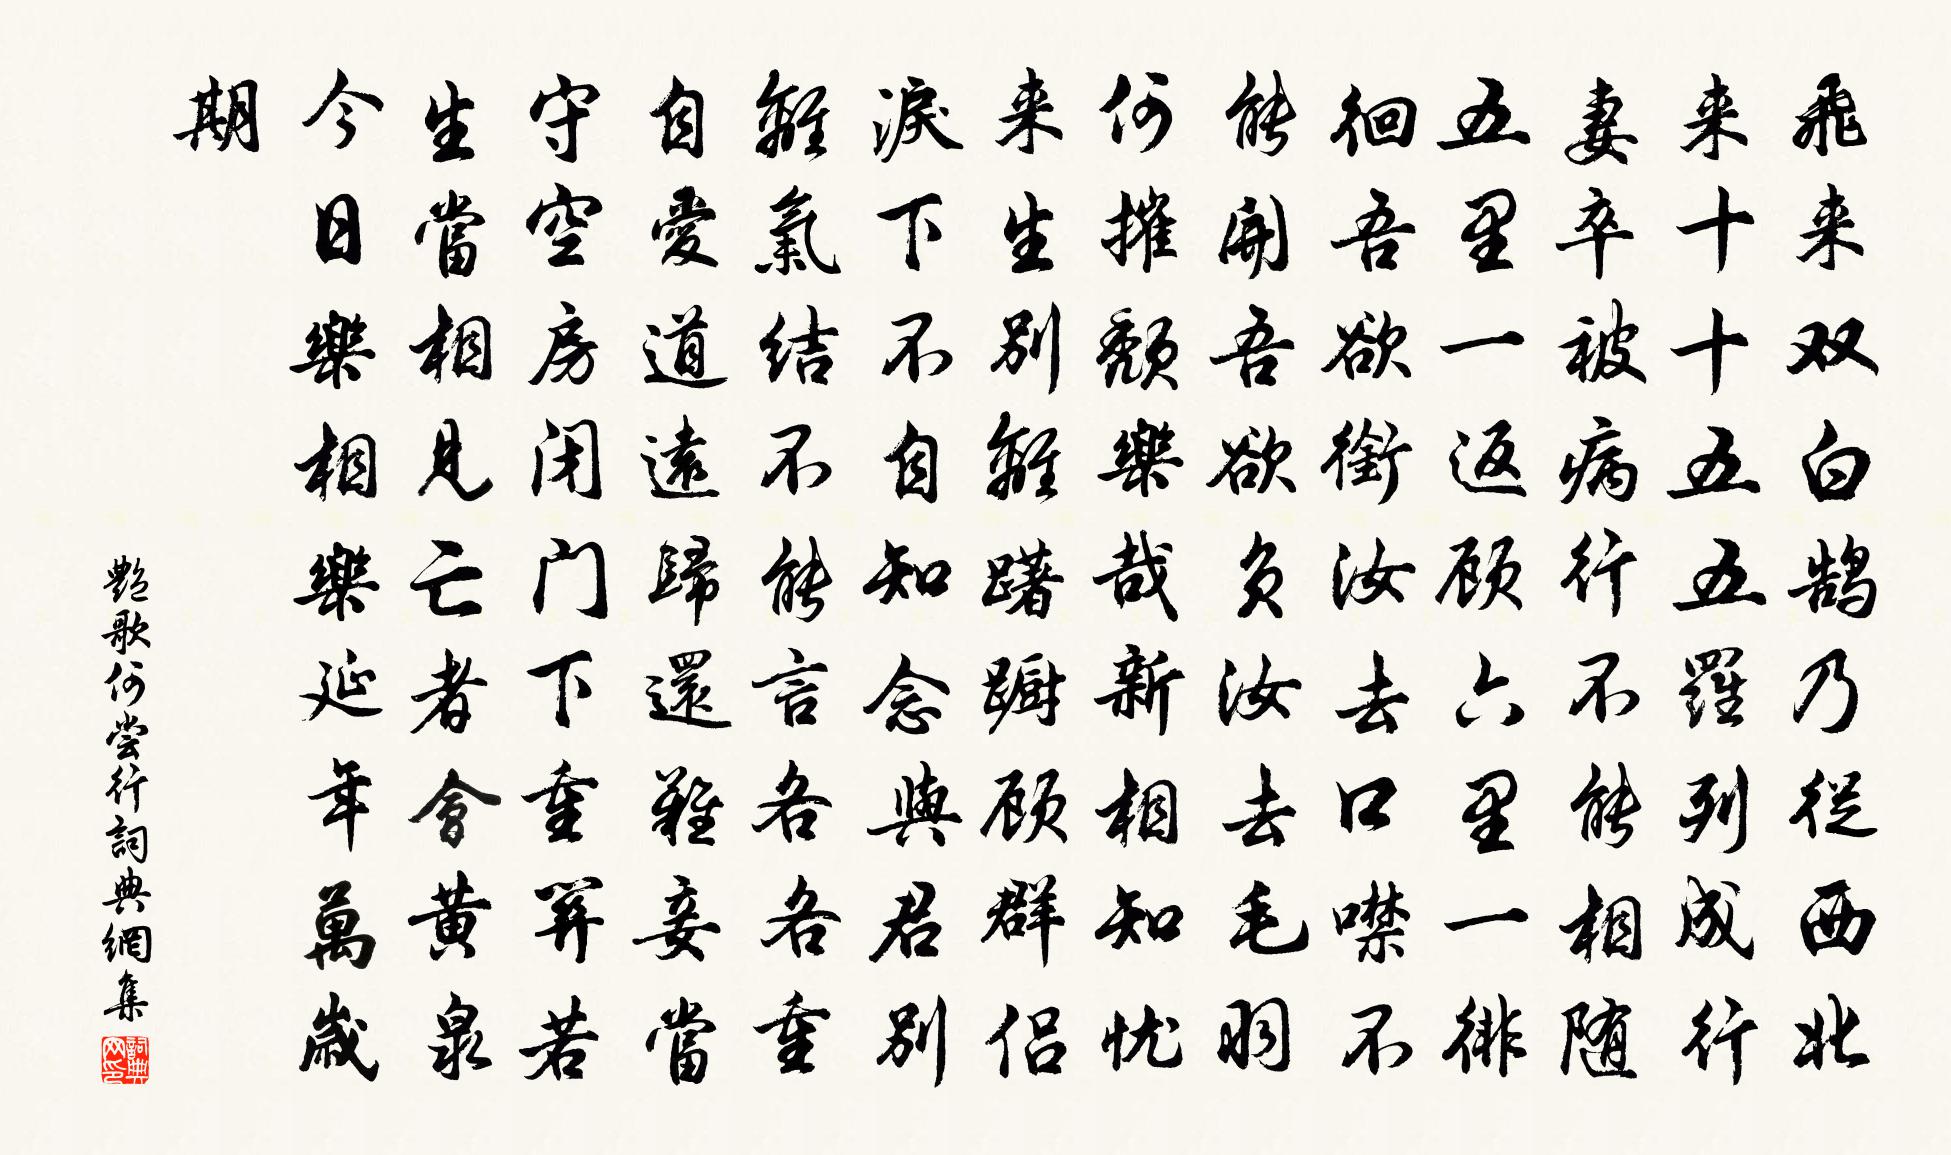 飛来双白鹄乃従西北
来十十五五羅列成行
妻卒被病行不能相随
五里一返顾六里一徘
徊吾欲銜汝去口噤不
能開吾欲负汝去毛羽
何摧颓樂哉新相知忧
来生别離躇蹰顾群侣
淚下不自知念與君别
離氣结不能言各各重
自愛道遠歸還難妾當
守空房闭门下重關若
生當相見亡者會黄泉
今日樂相樂延年萬歲
期
艷歌何尝行詞典網集
詞典网印